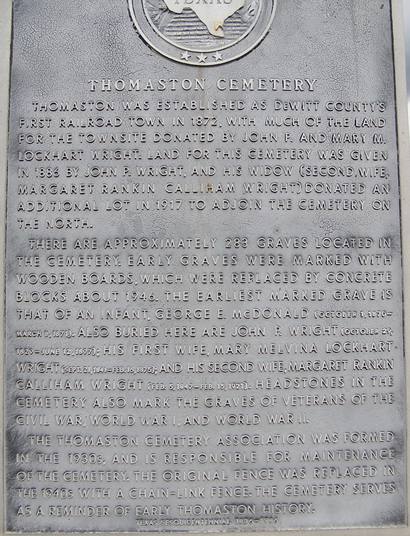 TEXAS
THOMASTON CEMETERY
THOMASTON WAS ESTABLISHED AS DEWITT COUNTY'S
FIRST RAILROAD TOWN IN 1872, WITH MUCH OF THE LAND
FOR THE TOWNSITE DONATED BY JOHN P. AND MARY M.
LOCKHART WRIGHT. LAND FOR THIS CEMETERY WAS GIVEN
IN 1888 BY JOHN P. WRIGHT, AND HIS WIDOW (SECOND WIFE,
MARGARET RANKIN CALLIHAM WRIGHT) DONATED AN
ADDITIONAL LOT IN 1917 TO ADJOIN THE CEMETERY ON
THE NORTH.
THERE ARE APPROXIMATELY 283 GRAVES LOCATED IN
THE CEMETERY. EARLY GRAVES WERE MARKED WITH
WOODEN BOARDS, WHICH WERE REPLACED BY CONCRETE
BLOCKS ABOUT 1946. THE EARLIEST MARKED GRAVE IS
THAT OF AN INFANT, GEORGE E. McDONALD
ALSO BURIED HERE ARE JOHN P. WRIGHT
HIS FIRST WIFE, MARY MELVINA LOCKHART
WRIGHT AND HIS SECOND WIFE, MARGARET RANKIN
CALLIHAM WRIGHT HEADSTONES IN THE
CEMETERY ALSO MARK THE GRAVES OF VETERANS OF THE
CIVIL WAR, WORLD WAR I, AND WORLD WAR II.
THE THOMASTON CEMETERY ASSOCIATION WAS FORMED
IN THE 1930S, AND IS RESPONSIBLE FOR MAINTENANCE
OF THE CEMETERY. THE ORIGINAL FENCE WAS REPLACED IN
THE 1940S WITH A CHAIN-LINK FENCE. THE CEMETERY SERVES
AS A REMINDER OF EARLY THOMASTON HISTORY.
TEXAS SESQUICENTENNIAL 1836-1986